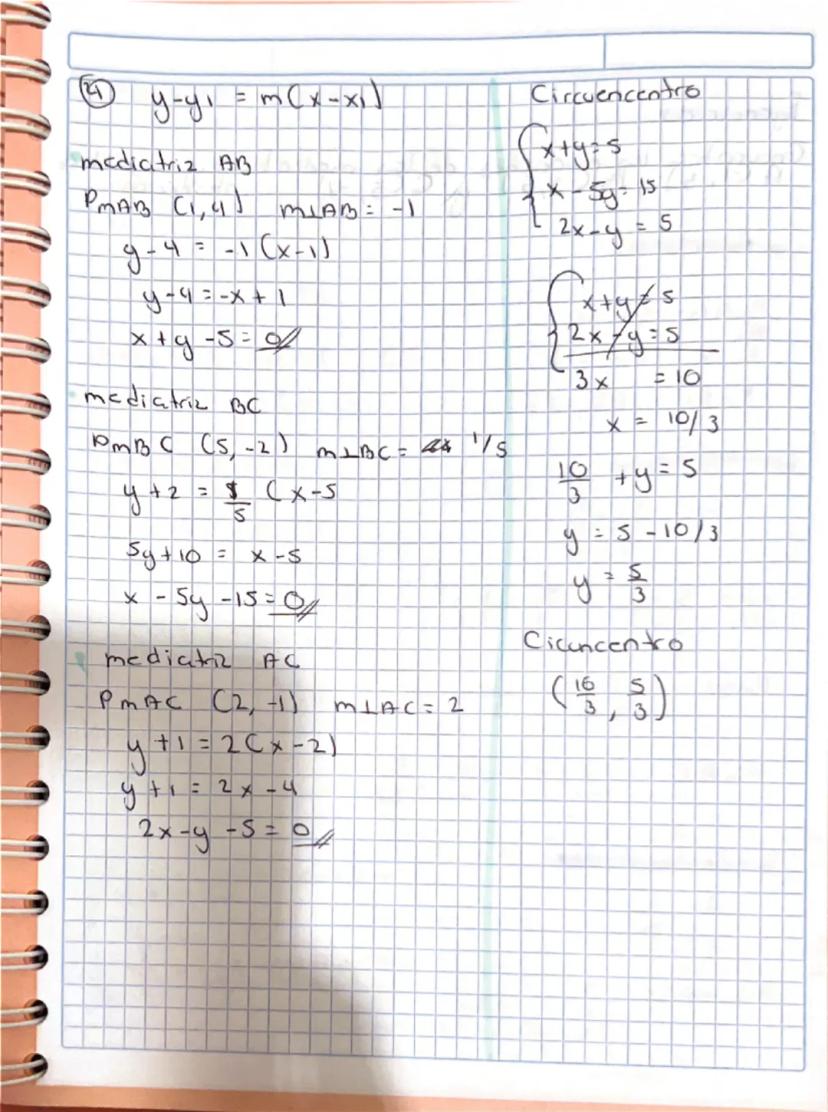 21 y-y1 = m(x-x1)
mediatriz AB
PmAB (1,4) m⊥AB = -1
y-4 = -1(x-1)
y-4 = -x+1
x+y-5=0
mediatriz BC
PmBC (5,-2) m⊥BC = 1/5
y+2 = 1/5 (x-5
5y+10 = x-5
x-5y-15=0
mediatriz AC
PmAC (2,-1) m⊥AC = 2
y+1 = 2(x-2)
y+1 = 2x-4
2x-y-5=0
Circuencentro
x+y=5
x-5y=15
2x-y=5
x+y=5
2x-y=5
3x =10
x = 10/3
10/3 +y=5
y = 5-10/3
y = 5/3
(10/3, 5/3)